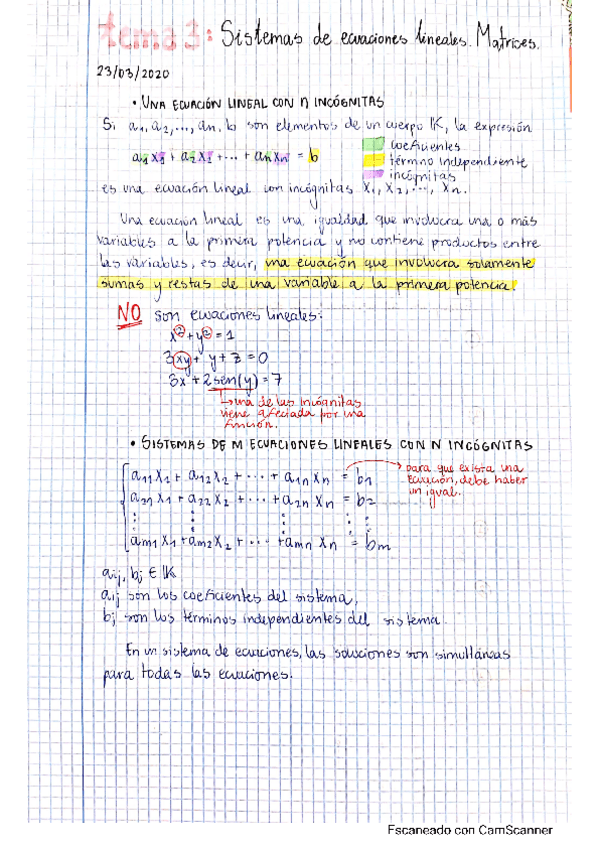 tema 3: Sistemas de ecuaciones lineales. Matrices.
23/03/2020
• UNA ECUACIÓN LINEAL CON n INCÓGNITAS
Si a₁, a₂, ..., an, b son elementos de un cuerpo K, la expresión
coeficientes
a₁x₁ + a₂x₂ + ... + anxn = b
término independiente
incógnitas
es una ecuación lineal con incógnitas x₁, x₂, ..., xn.
Una ecuación lineal es una igualdad que involucra una o más
variables a la primera potencia y no contiene productos entre
las variables, es decir, una ecuación que involucra solamente
sumas y restas de una variable a la primera potencia.
NO son ecuaciones lineales:
x² + y² = 1
3xy + y + z = 0
3x + 2sen(y) = 7
↳ una de las incógnitas
viene afectada por una
función.
• SISTEMAS DE M ECUACIONES LINEALES CON N INCÓGNITAS
a₁₁x₁ + a₁₂x₂ + ... + a₁nxn = b₁
para que exista una
ecuación, debe haber
un igual.
a₂₁x₁ + a₂₂x₂ + ... + a₂nxn = b₂
⋮ ⋮ ⋮ ⋮ ⋮
am₁x₁ + am₂x₂ + ... + amnxn = bm
aij, bj ∈ K
aij son los coeficientes del sistema,
bj son los términos independientes del sistema.
En un sistema de ecuaciones, las soluciones son simultáneas
para todas las ecuaciones.
Escaneado con CamScanner